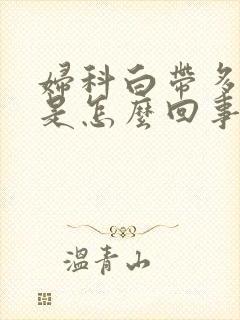 婦科白帶多
是怎麼回事
溫青山